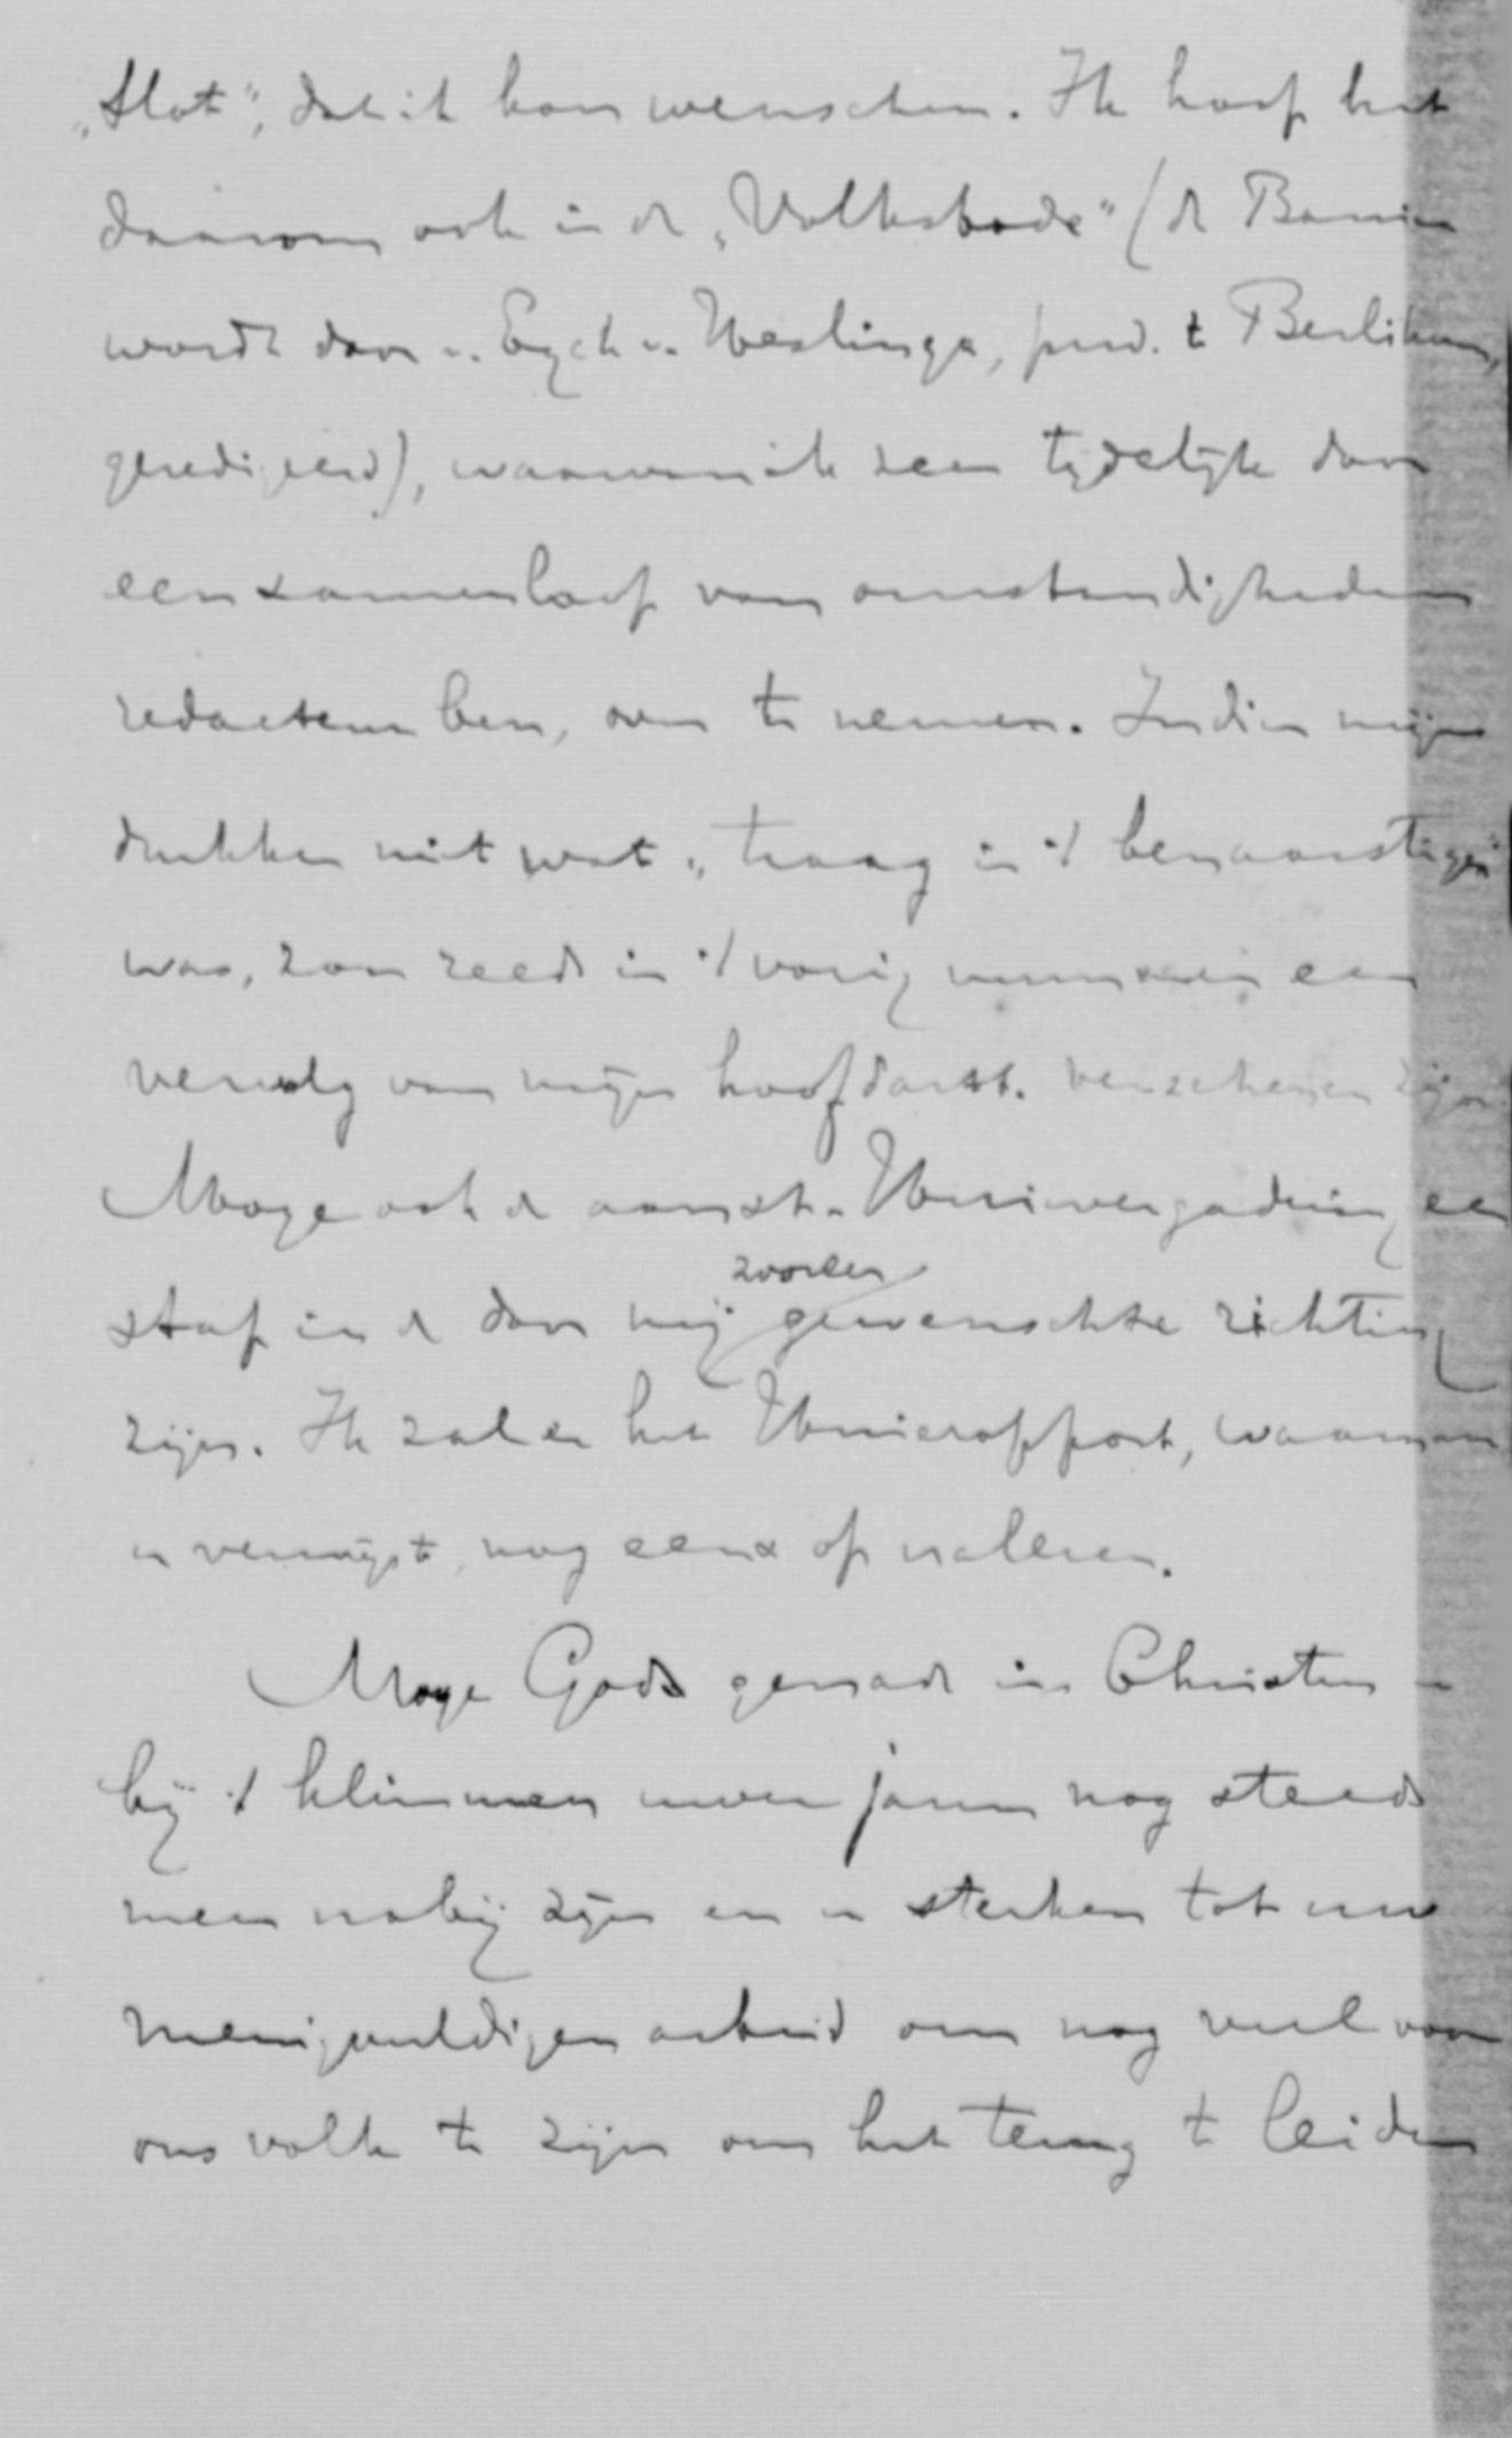 „Slot”, dat ik kon wenschen. Ik hoop het
daarom ook in de „Volksbode” (de Banier
wordt door v. Eyck v. Heslinga, pred. te Berlikum,
geredigeerd), waarvan ik zeer tijdelijk door
een samenloop van omstandigheden
redacteur ben, over te nemen. Indien mijn
drukker niet wat „traag in 't benaarstigen”
was, zou reeds in 't vorig nummer een
vervolg van mijn hoofdart. verschenen zijn.
Moge ook de aanst. Unievergadering een
stap in de door mij zoozeer gewenschte richting
zijn. Ik zal er het Unierapport, waarnaar
u verwijst, nog eens op nalezen.
Moge Gods genade in Christus u
bij 't klimmen uwer jaren nog steeds
meer nabij zijn en u sterken tot uw
menigvuldigen arbeid om nog veel voor
ons volk te zijn om het terug te leiden